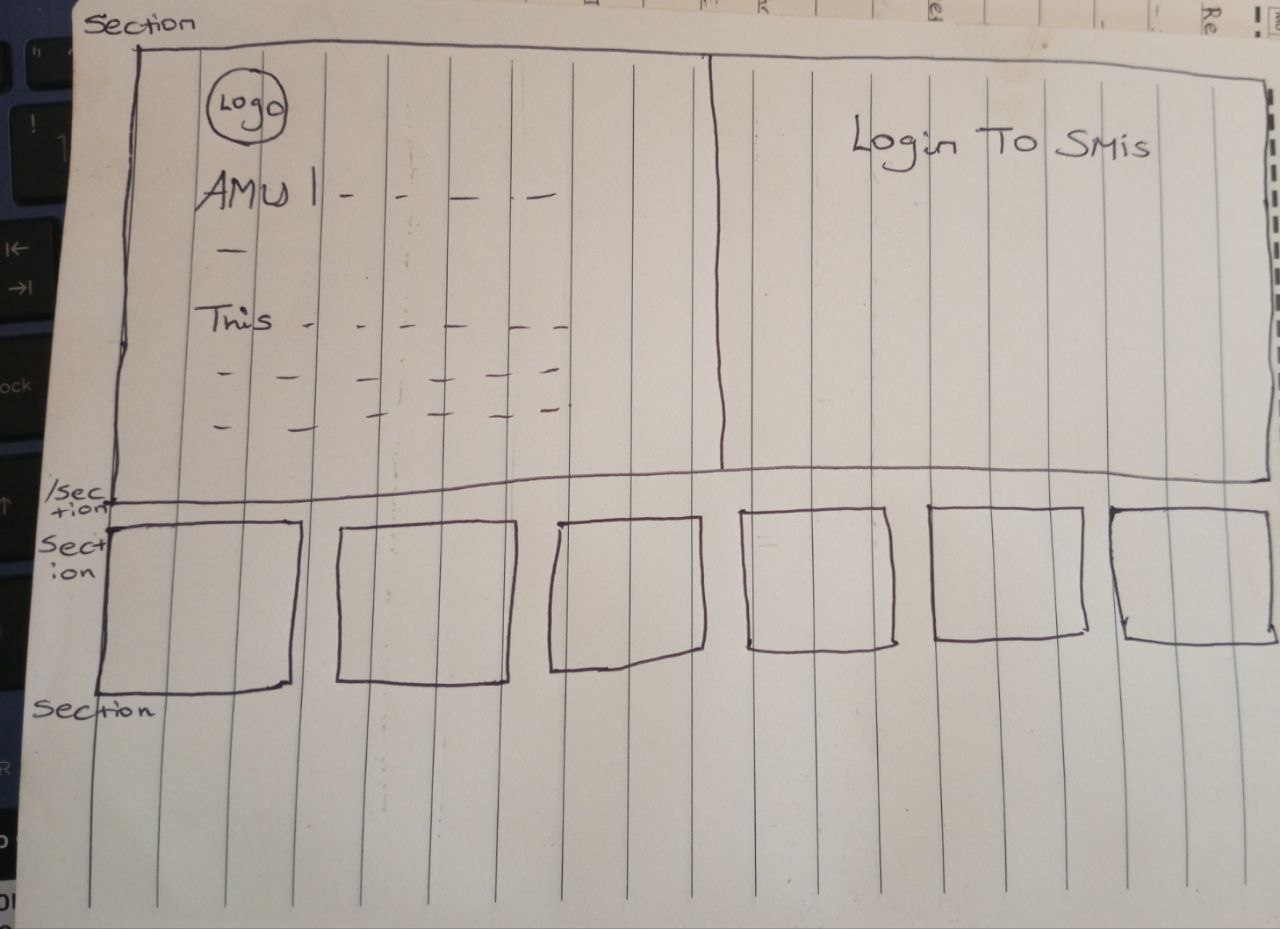 Section
Logo
AMU |- - — —
—
This - - - - - -
Login To SMis
/sec
tion
Sect
ion
Section
Re
ock